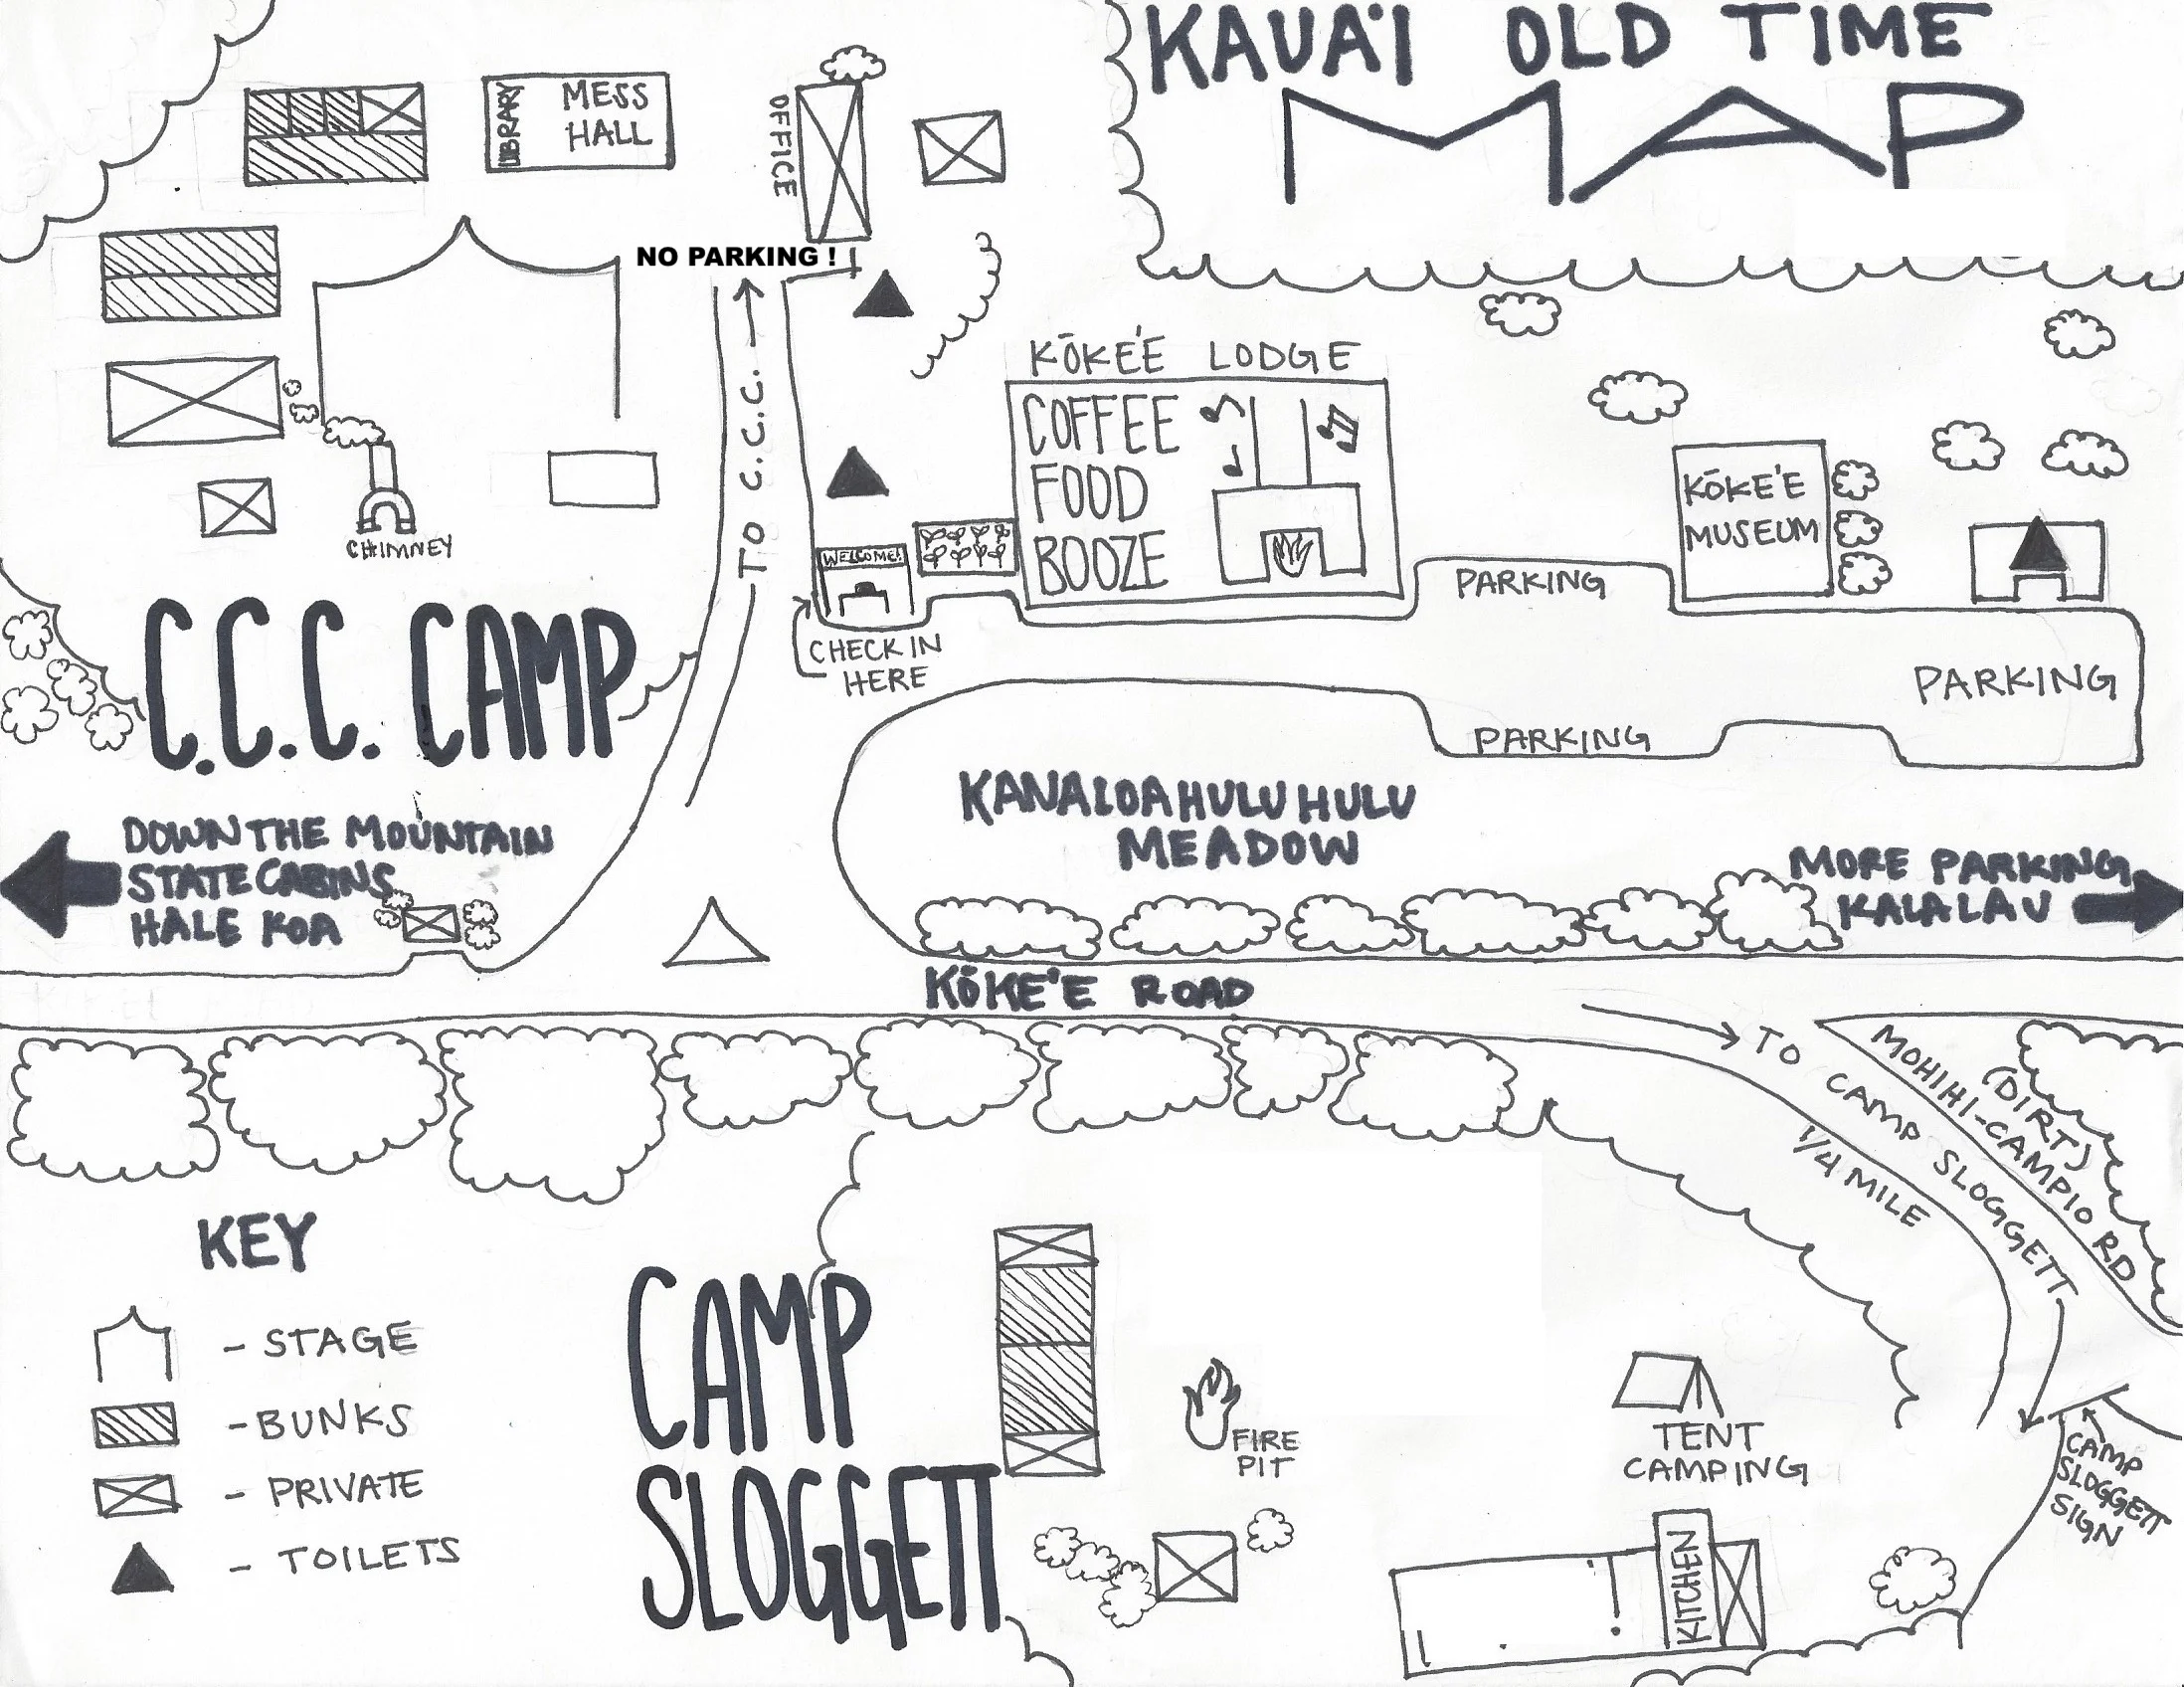 KAUA'I OLD TIME
MAP
LIBRARY
MESS
HALL
OFFICE
NO PARKING !
TO C.C.C.
CHIMNEY
C.C.C. CAMP
KŌKE'E LODGE
COFFEE
FOOD
BOOZE
WELCOME!
CHECK IN
HERE
PARKING
KŌKE'E
MUSEUM
PARKING
PARKING
KANALOAHULUHULU
MEADOW
DOWN THE MOUNTAIN
STATE CABINS
HALE KOA
MORE PARKING
KALALAU
KŌKE'E ROAD
TO CAMP SLOGGETT
1/4 MILE
MOHIHI-CAMPIO RD
(DIRT)
KEY
- STAGE
- BUNKS
- PRIVATE
- TOILETS
CAMP
SLOGGETT
FIRE
PIT
TENT
CAMPING
KITCHEN
CAMP
SLOGGETT
SIGN